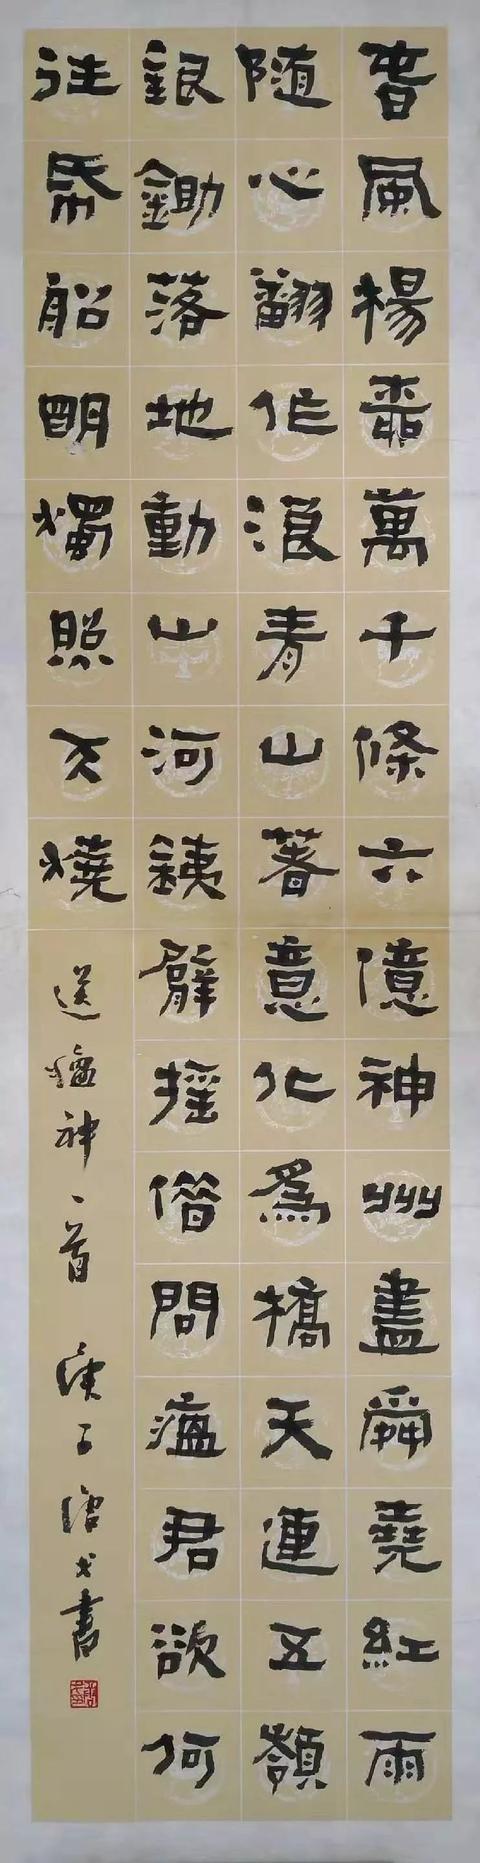 春風楊柳萬千條六億神州盡舜堯紅雨
随心翻作浪青山著意化為橋天連五嶺
銀鋤落地動山河銕臂摇借問瘟君欲何
往帋船明燭照天燒
送瘟神一首 庚子 書